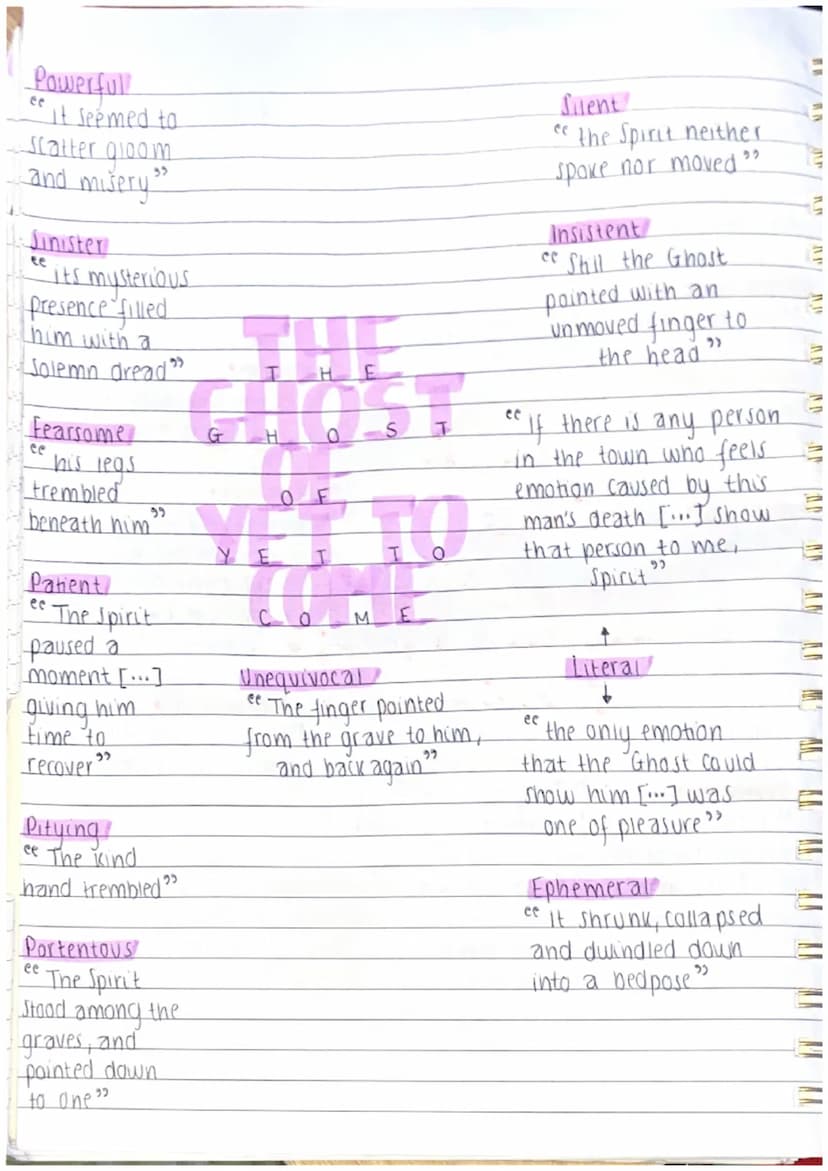 Powerful
“it seemed to
scatter gloom
and misery”
Sinister
“its mysterious
presence filled
him with a
solemn dread”
Fearsome
“his legs
trembled
beneath him”
Patient
“The Spirit
paused a
moment [...]
giving him
time to
recover”
Pitying
“The kind
hand trembled”
Portentous
“The Spirit
stood among the
graves, and
pointed down
to one”
THE
GHOST
OF
YET TO
COME
Unequivocal
“The finger pointed
from the grave to him,
and back again”
Silent
“the Spirit neither
spoke nor moved”
Insistent
“Still the Ghost
pointed with an
unmoved finger to
the head”
“If there is any person
in the town who feels
emotion caused by this
man's death [...] show
that person to me,
Spirit”
↑
Literal
↓
“the only emotion
that the Ghost could
show him [...] was
one of pleasure”
Ephemeral
“it shrunk, collapsed
and dwindled down
into a bedpose”